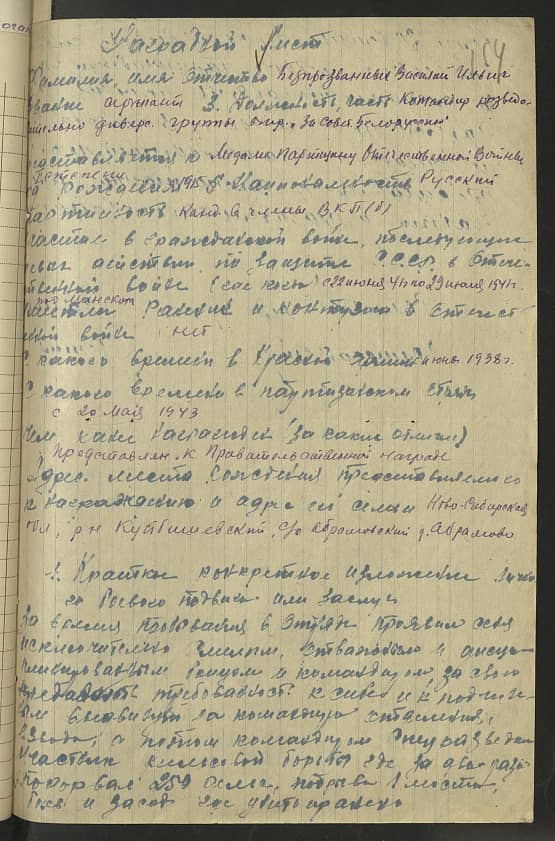 14
Наградной Лист
Фамилия, имя Отчество Безпрозванных Василий Ильич
Звание сержант 3. Должность, часть Командир разведо-
вательно диверс. группы отр. За Совет. Белоруссию
Представляется к Медаль Партизану Отечественной Войны
степени
Год Рождения 1915 5. Национальность Русский
Партийность Канд. в члены ВКП(б)
Участие в гражданской войне, последующих
боевых действиях по защите СССР в Отече-
ственной войне с 22 июня 41 по 29 июля 1941г.
под Минском
Имеет ли ранения и контузии в отечест
венной войне нет
С какого времени в Красной армии июнь 1938г.
С какого времени в партизанском отряде
с 20 мая 1943
Чем ранее награжден (за какие отличия)
Представлен к Правительственной награде
Адрес места рождения представляемого
к награждению и адрес его семьи Ново-Сибирская
обл, р-н Куйбышевский, с/о Абрамовский д. Абрамово
1. Краткое конкретное изложение лично
го боевого подвига или заслуг
За время пребывания в отряде проявил себя
исключительно смелым, отважным и дисцип
линированным бойцом и командиром, за свою
требовательность к себе и к подчинен
ым выдвинут на командира отделения,
взвода, а потом командиром
Участник рельсовой борьбы где за два раза
подорвал 250 рельс, подрыва 1 моста,
боев и засад где убито